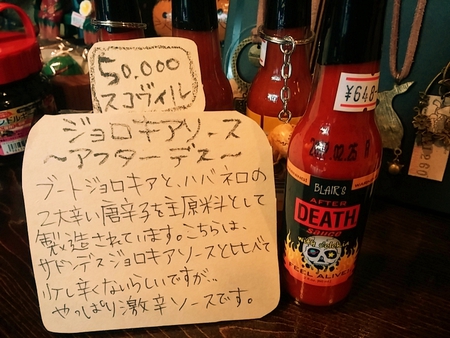 50,000
スコヴィル
ジョロキアソース
～アフターデス～
ブートジョロキアと、ハバネロの
2大辛い唐辛子を主原料として
製造されています。こちらは、
サドンデスジョロキアソースと比べて
少し辛くないらしいですが…
やっぱり激辛ソースです。
¥648
BLAIR'S
AFTER
DEATH
sauce
FEEL ALIVE